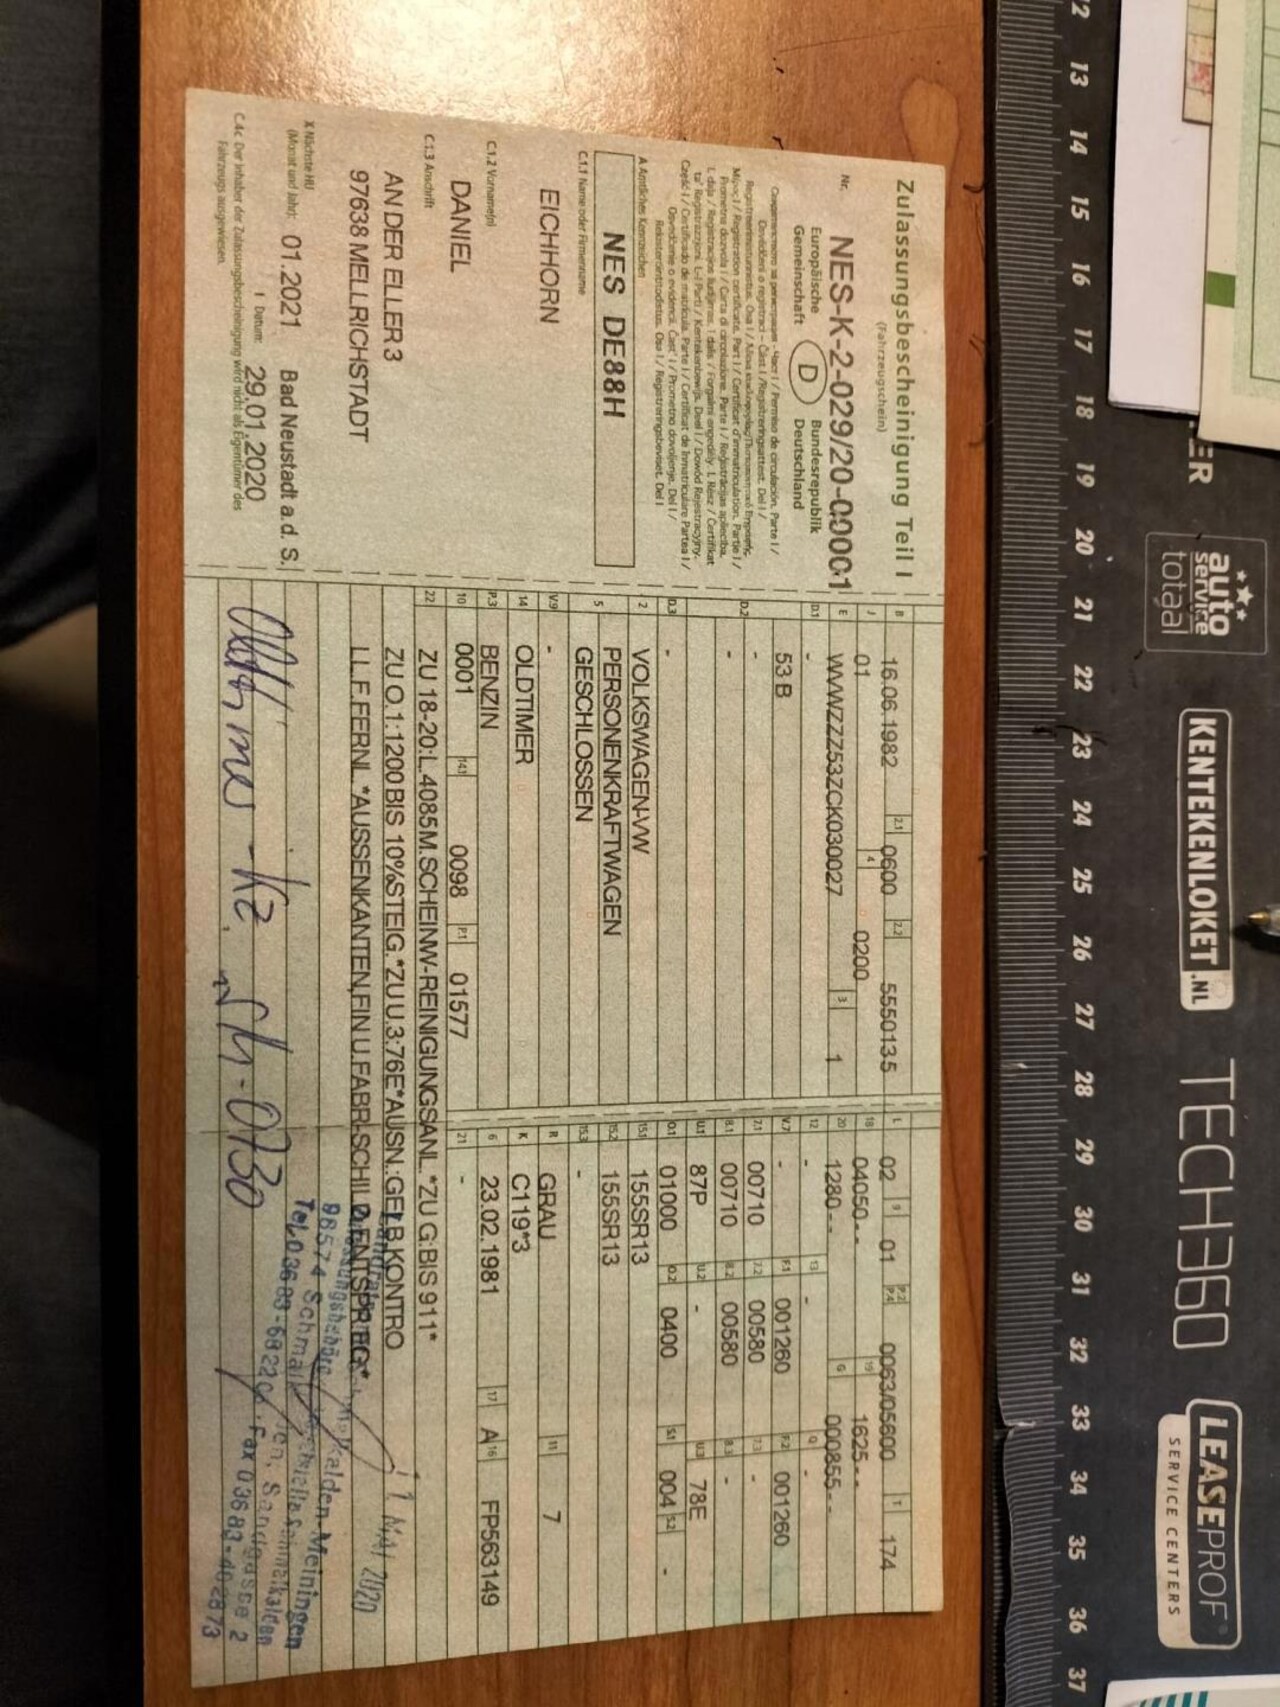 Zulassungsbescheinigung Teil I
(Fahrzeugschein)
Nr. NES-K-2-029/20-00001
Europäische Gemeinschaft D Bundesrepublik Deutschland
A Amtliches Kennzeichen
NES DE88H
C.1.1 Name oder Firmenname
EICHHORN
C.1.2 Vorname(n)
DANIEL
C.1.3 Anschrift
AN DER ELLER 3
97638 MELLRICHSTADT
X Nächste HU
(Monat und Jahr): 01.2021 Bad Neustadt a.d. S.
I Datum: 29.01.2020
C.4c Der Inhaber der Zulassungsbescheinigung wird nicht als Eigentümer des
Fahrzeugs ausgewiesen.
B 16.06.1982 2.1 0600 2.2 5550135
J 01 4 0200
E WVWZZZ53ZCK030027 3 1
D.1 -
53 B
D.2 -
-
D.3 -
2 VOLKSWAGEN-VW
5 PERSONENKRAFTWAGEN
GESCHLOSSEN
V.9 -
14 OLDTIMER
P.3 BENZIN
10 0001 14.1 0098 P.1 01577
L 02 9 01 P.2 P.4 0063/05600 T 174
18 04050-- 19 1625--
20 1280-- G 000855--
12 - 13 - Q
V.7 - F.1 001260 F.2 001260
7.1 00710 7.2 00580 7.3 -
8.1 00710 8.2 00580 8.3 -
U.1 87P U.2 - U.3 78E
O.1 01000 O.2 0400 S.1 004 S.2 -
15.1 155SR13
15.2 155SR13
15.3 -
R GRAU 11 7
K C119*3
6 23.02.1981 17 A 16 FP563149
21 -
22 ZU 18-20:L.4085M.SCHEINW-REINIGUNGSANL.*ZU G:BIS 911*
ZU O.1:1200 BIS 10%STEIG.*ZU U.3:76E*AUSN.:GELB.KONTRO
LL.F.FERNL.*AUSSENKANTEN,FIN U.FABR-SCHILD ENTSPR.EG*
Oldtimer-Kz.
1. MAI 2020
98574 Schmalkalden, Sandgasse 2
Tel. 03683-
Fax 03683-
12 13 14 15 16 17 18 19 20 21 22 23 24 25 26 27 28 29 30 31 32 33 34 35 36 37
ER
auto
service
totaal
KENTEKENLOKET.NL
TECH360
LEASEPROF
SERVICE CENTERS